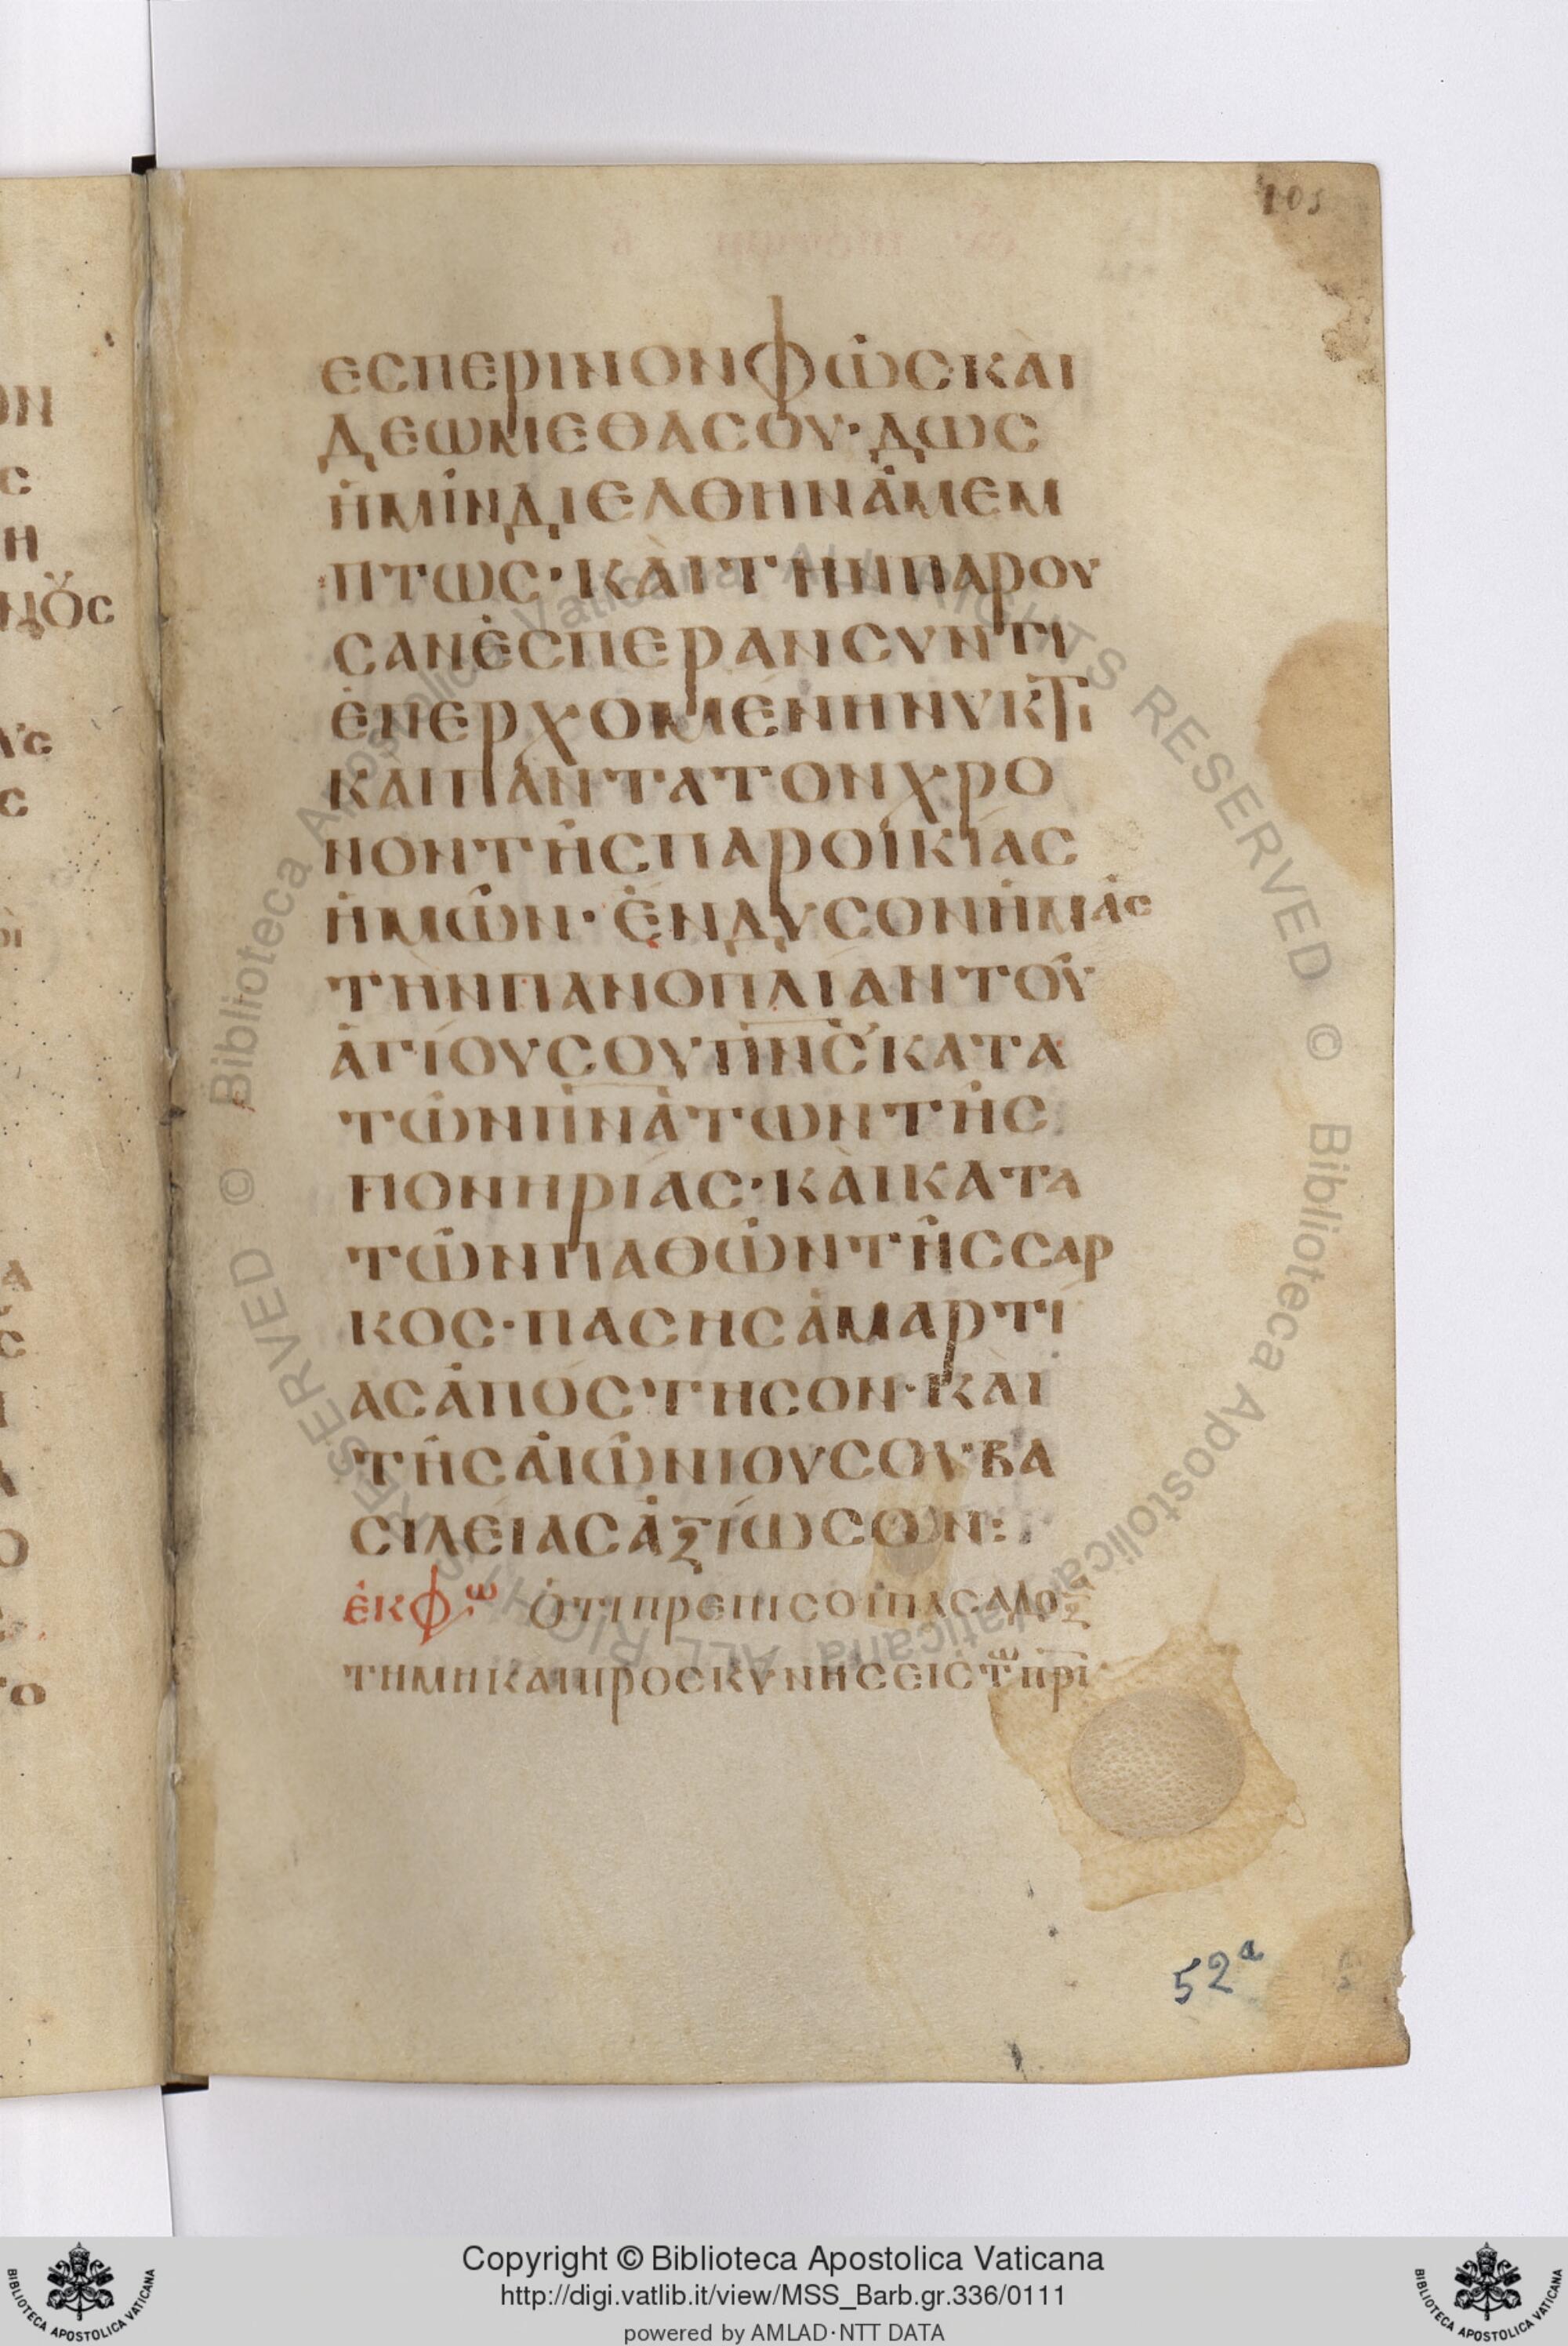 105
ΕСΠΕΡΙΝΟΝΦῶС·ΚΑῚ
ΔΕΩΜΕΘΑСΟΥ·ΔΩС
ἩΜῖΝΔΙΕΛΘΗΝἈΜΕΜ
ΠΤΩС·ΚΑῚΤΗΝΠΑΡΟΥ
СΑΝἙСΠΕΡΑΝСΥΝΤΙ
ἘΠΕΡΧΟΜΈΝΗΝΥΚΤΙ
ΚΑΙΠΆΝΤΑΤΟΝΧΡΟ
ΝΟΝΤῆСΠΑΡΟΙΚΊΑС
ἩΜῶΝ·ἘΝΔΥСΟΝἩΜᾶС
ΤῊΝΠΑΝΟΠΛΊΑΝΤΟῦ
ἉΓΊΟΥСΟΥΠ̅Ν̅С̅ΚΑΤΑ
ΤῶΝΠ̅Ν̅ΆΤΩΝΤῆС
ΠΟΝΗΡΊΑС·ΚΑῚΚΑΤΑ
ΤῶΝΠΑΘῶΝΤῆССΑΡ
ΚΟС·ΠΑСΗСἉΜΑΡΤΊ
ΑСἈΠΌСΤΗСΟΝ·ΚΑῚ
ΤῆСΑἸΩΝΙΟΥСΟΥΒΑ
СΙΛΕΊΑСἈΞΊΩСΟΝ:
ἘΚΦω ὍΤΙΠΡΕΠΙСΟΙΠΑСΑΔΟΞ
ΤΗΜΗΚΑΙΠΡΟСΚΥΝΗСΕΙСΤωΠ̅Ρ̅Ι̅
52a
© Biblioteca Apostolica Vaticana ALL RIGHTS RESERVED © Biblioteca Apostolica Vaticana ALL RIGHTS RESERVED
Copyright © Biblioteca Apostolica Vaticana
http://digi.vatlib.it/view/MSS_Barb.gr.336/0111
powered by AMLAD·NTT DATA
BIBLIOTECA APOSTOLICA VATICANA
BIBLIOTECA APOSTOLICA VATICANA